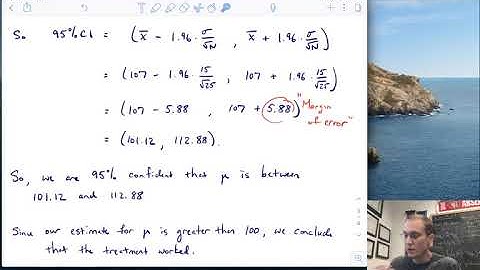 So 95% CI = (x̄ - 1.96 · σ/√N , x̄ + 1.96 · σ/√N)
= (107 - 1.96 · 15/√25 , 107 + 1.96 · 15/√25)
= (107 - 5.88 , 107 + 5.88) "Margin of error"
= (101.12, 112.88).
So, we are 95% confident that μ is between
101.12 and 112.88
Since our estimate for μ is greater than 100, we conclude
that the treatment worked.